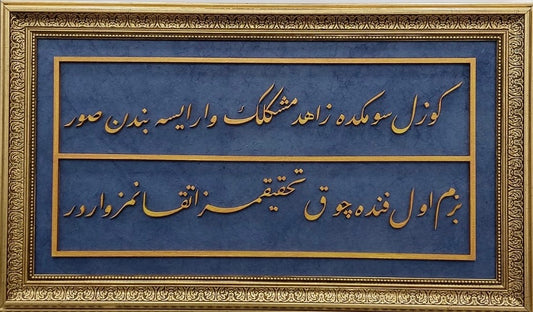 كوزل سومكده زاهد مشكلك وار ايسه بندن صور
بزم اول فنده چوق تحقيقمز اتقانمز واردر